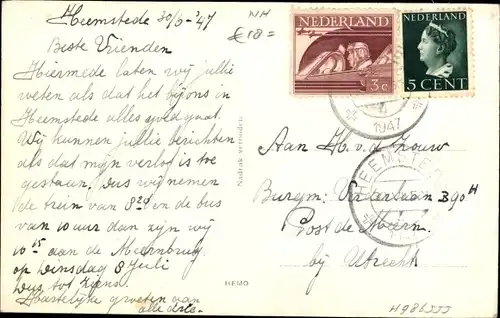 Heemstede 30/6-'47
NH
€ 18=
Beste Vrienden
Hiermede laten wij jullie
weten als dat het bij ons in
Heemstede alles goed gaat.
Wij kunnen jullie berichten
als dat mijn verlof is toe
gestaan. Dus wij nemen
de trein van 8 20 en de bus
van 10 uur dan zijn wij
10 15 aan de Meernbrug.
op Dinsdag 8 Juli
Dus tot ziens.
Hartelijke groeten van
alle drie.
Nadruk verboden
HEMO
NEDERLAND
3c
NEDERLAND
5 CENT
1947
HEEMSTEDE
Aan H. v. d. Gouw
Burgm: Verderlaan B 90 H
Post de Meern.
bij Utrecht
H986JJJ